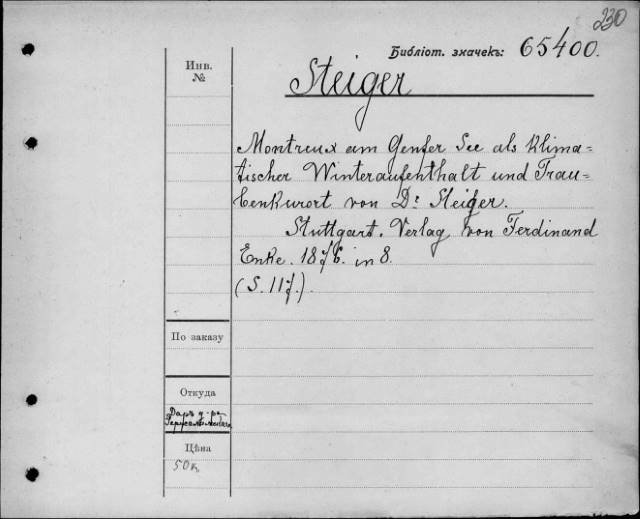 230
Библіот. значекъ: 65400.
Инв.
№
Steiger
Montreux am Genfer See als klima=
tischer Winteraufenthalt und Trau=
benkurort von Dr Steiger.
Stuttgart. Verlag von Ferdinand
Enke. 1876. in 8.
(S. 117.).
По заказу
Откуда
Даръ д-ра
Цѣна
50 к.